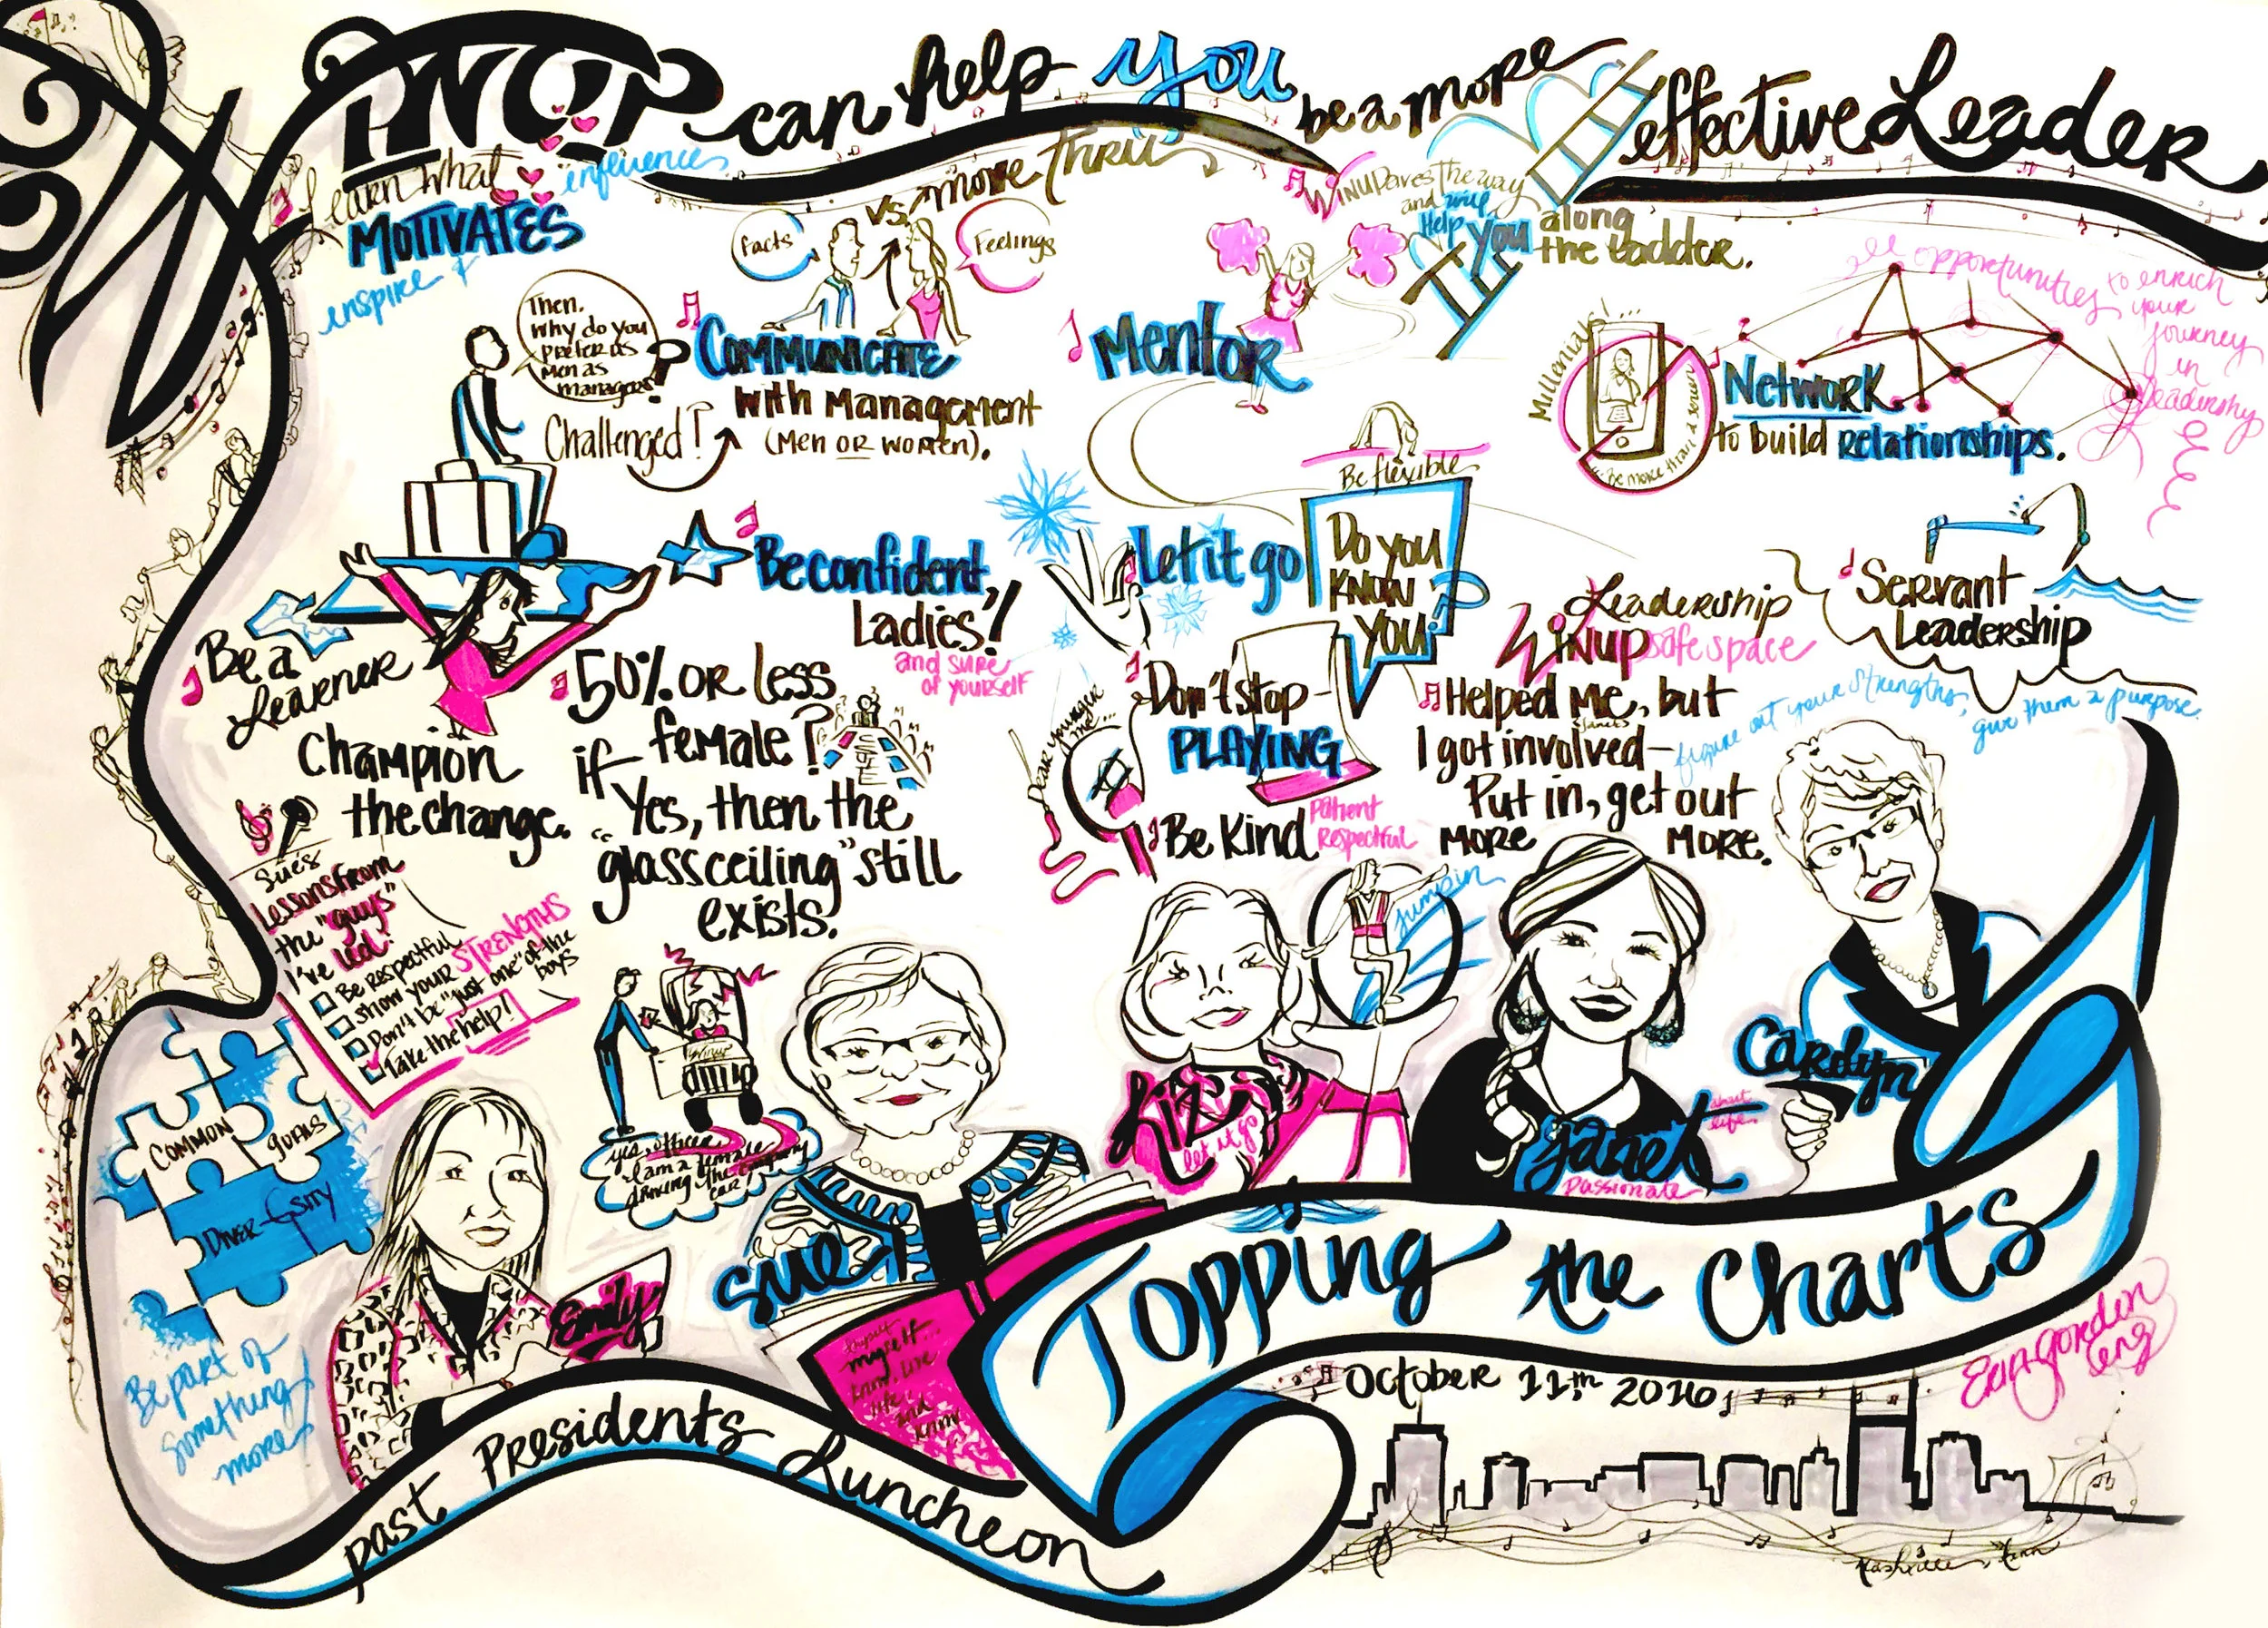 WINUP can help you be a more effective Leader
Learn what
MOTIVATES
influences
inspire &
facts
vs.
Feelings
move thru
WINUP paves the way
and will
Help you
along
the ladder.
all opportunities
to enrich
your
journey
in
leadership
Then.
Why do you
prefer us
men as
managers?
Challenged?
COMMUNICATE
with Management
(Men OR Women).
Mentor
Millenials!...
...be more than a screen
Network
to build relationships.
Be flexible
Be a
Learner
Be confident,
Ladies!
and sure
of yourself
Let it go
Do you
know
you?
Leadership
WINUP safe space
Servant
Leadership
Champion
the change.
50% or less
female?
if
Yes, then the
"glass ceiling" still
exists.
Dear younger
me...
Don't stop
PLAYING
Be Kind
Patient
Respectful
Helped me, but
I got involved-
Put in, get out
MORE MORE.
figure out your strengths,
give them a purpose.
Sue's
Lessons from
the "guys"
I've led:
Be Respectful
Show your STRENGTHS
Don't be "just one" of the
boys
Take the help!
Jump in
yes, officer
I am a female
driving the company
car!
COMMON
goals
Diver-sity
Be part of
something
more
Emily
Sue
Liz
let it go
Janet
Passionate
about
life
Carolyn
myself...
life
and
Topping the Charts
Past Presidents Luncheon
October 11th 2016
Erin Gordon
Nashville, Tenn